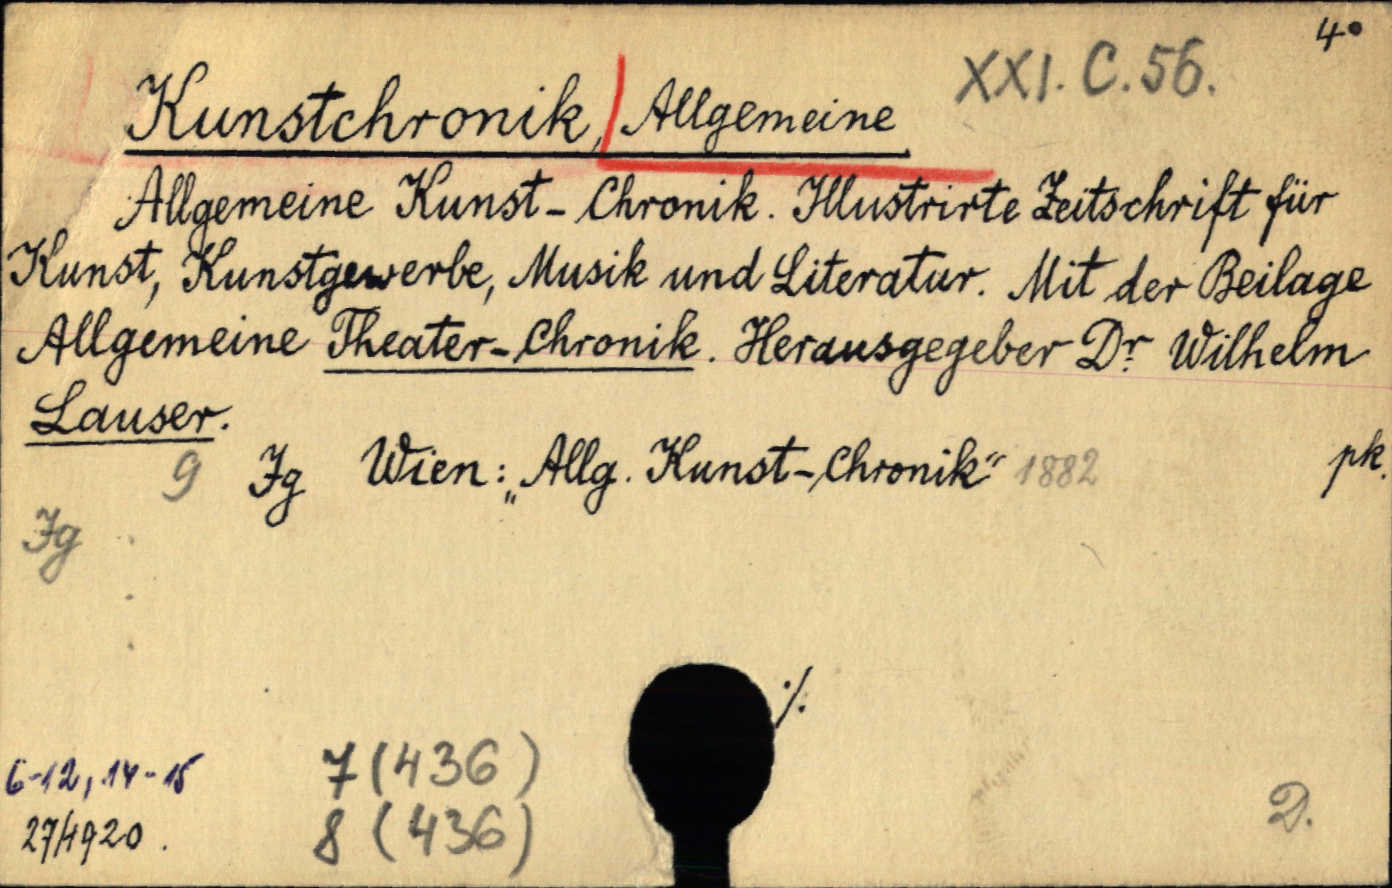 4°
XXI. C. 56.
Kunstchronik, Allgemeine
Allgemeine Kunst-Chronik. Illustrirte Zeitschrift für
Kunst, Kunstgewerbe, Musik und Literatur. Mit der Beilage
Allgemeine Theater-Chronik. Herausgegeber Dr. Wilhelm
Lauser.
9 Jg Wien: „Allg. Kunst-Chronik“ 1882 pk.
Jg
·/.
6-12, 14-15 7 (436)
27/4920. 8 (436) D.